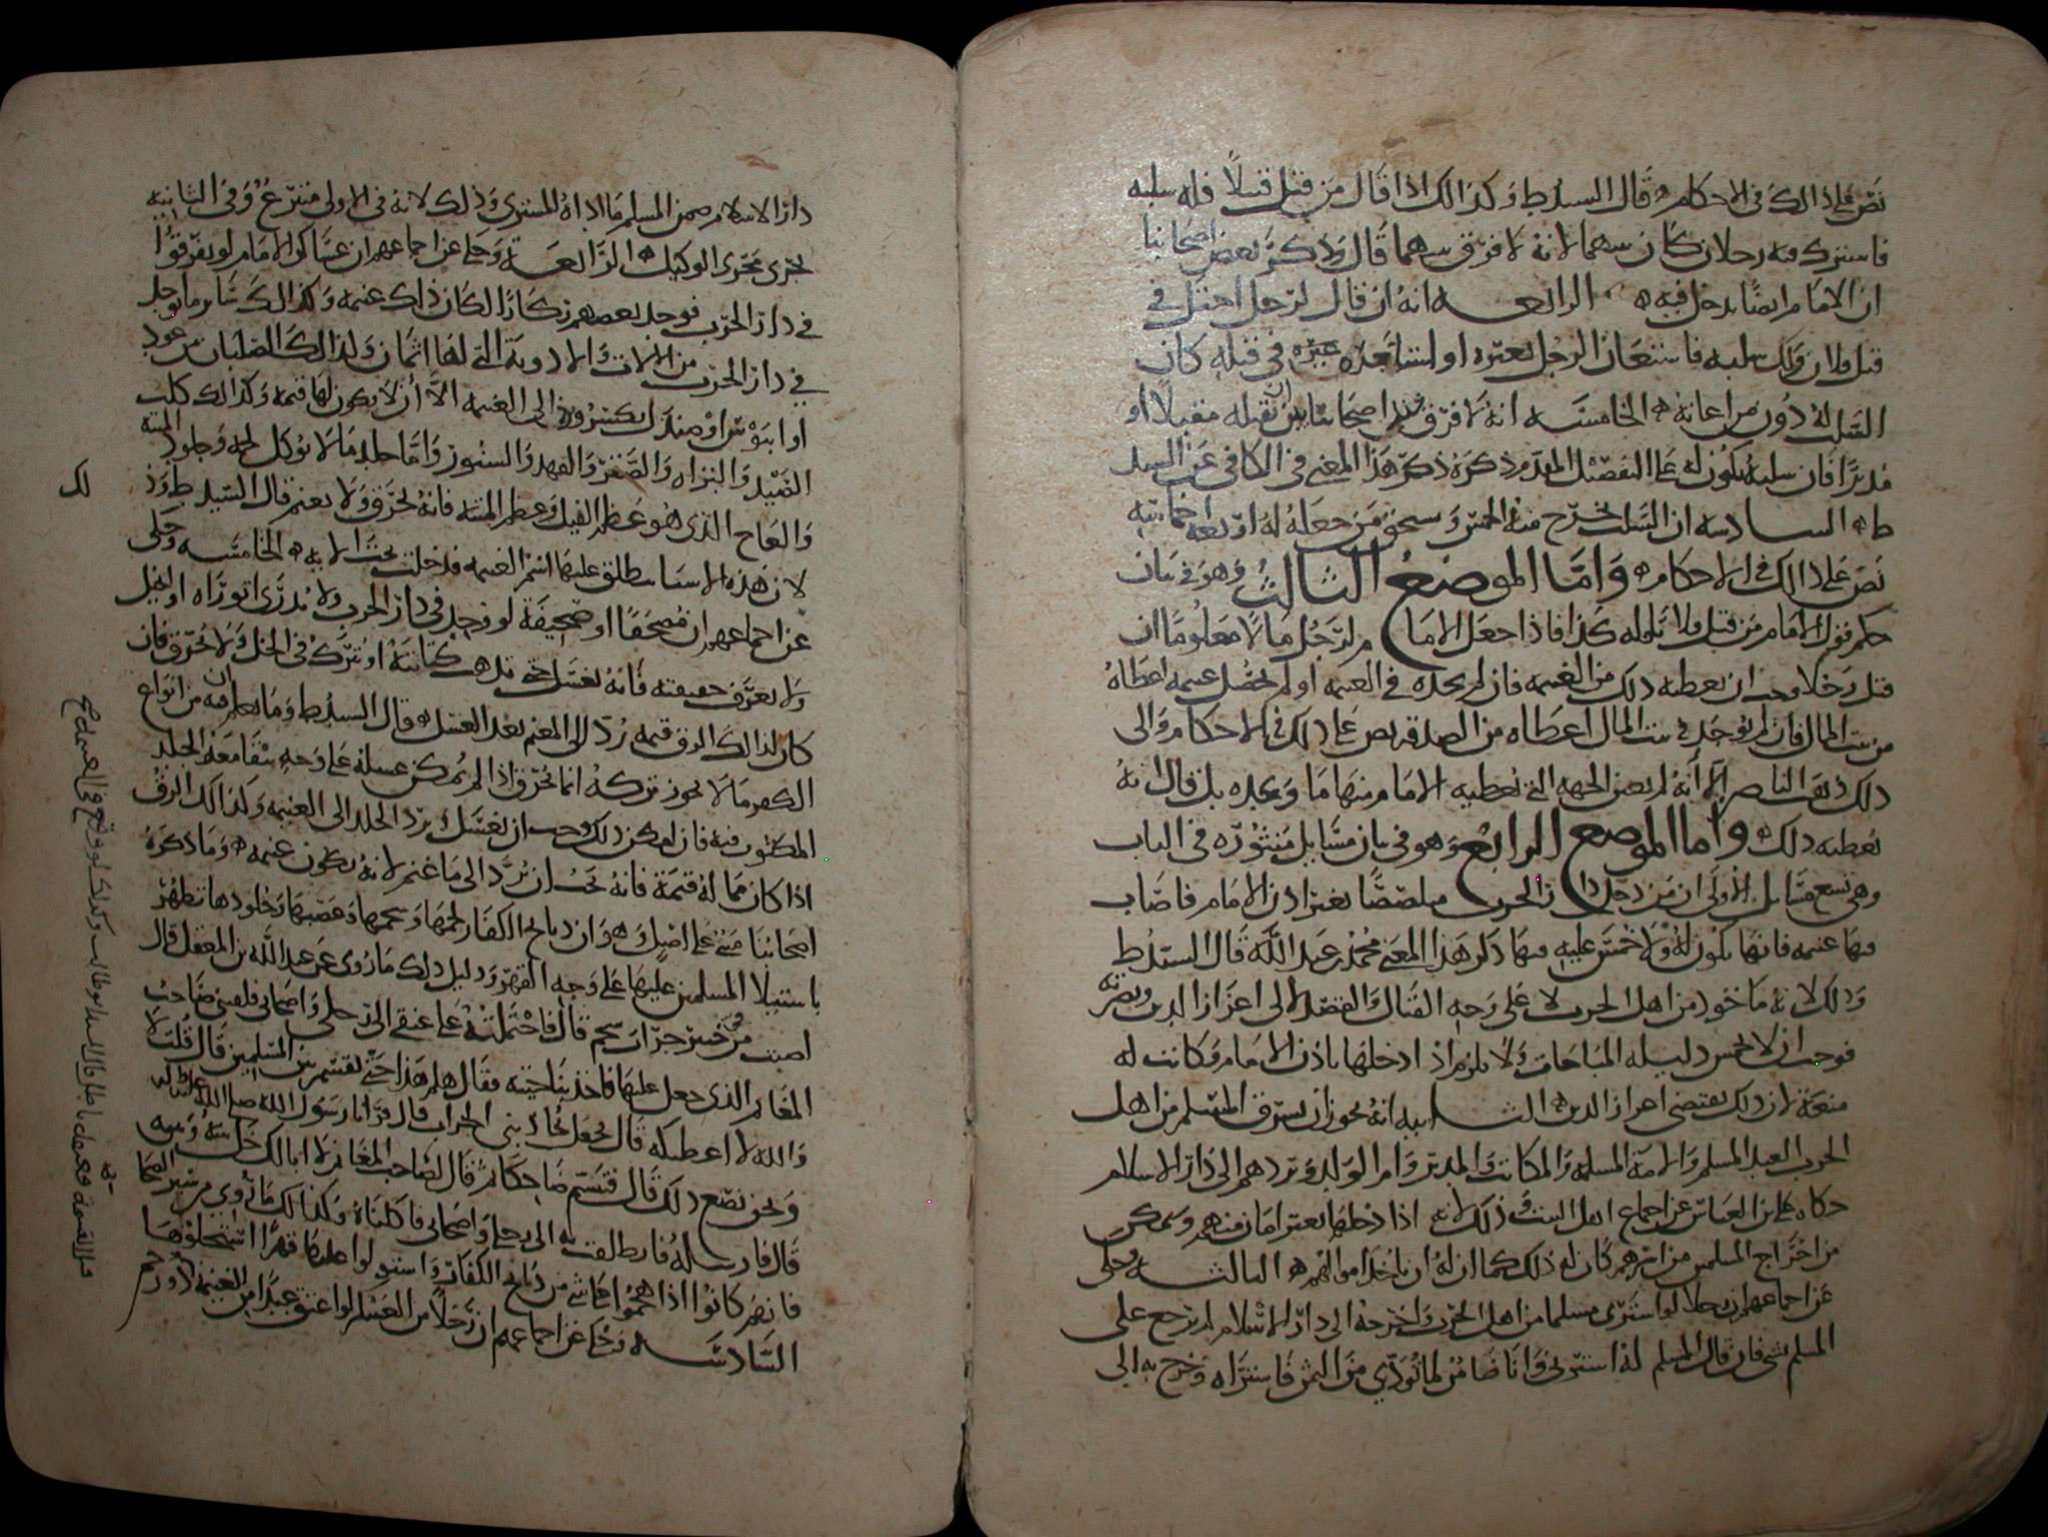 نص على ذلك في الاحكام قال السيد ط وكذلك اذا قال من قتل قتيلاً فله سلبه
فاشترك فيه رجلان كان بينهما لانه لا فرق بينهما قال وذكر بعض اصحابنا
ان الامام ايضا يدخل فيه الرابعه انه ان قال لرجل اخر ان
قتل فلان ولك سلبه فاستعان الرجل بغيره او لشاعده غيره في قتله كان
السلب له دون من اعانه الخامسه انه لا فرق عند اصحابنا بين ان يقتله مقبلاً او
مدبراً فان سلبه يكون له على التفصيل المقدم ذكره ذكر هذا المعنى في الكافي عن السيد
ط السادسه ان السلب يخرج منه الخمس ويستحق من جعله له اربعة اخماسه
نص على ذلك في الاحكام واما الموضع الثالث وهو في بيان
حكم قول الامام من قتل فلانا فله كذا فاذا جعل الامام لرجل مالا معلوما ان
قتل رجلا وجب ان يعطيه ذلك من الغنيمه فان لم يجده في الغنيمه او لم تحصل غنيمه اعطاه
من بيت المال فان لم يوجد في بيت المال اعطاه من الصدقه نص على ذلك في الاحكام والى
ذلك ذهب الناصر الا انه لم يعين الجهه التي يعطيه الامام منها ما وعده بل قال انه
يعطيه ذلك واما الموضع الرابع وهو في بيان مسايل منثوره في الباب
وهي تسع مسايل الاولى ان من دخل دار الحرب متلصصا بغير اذن الامام فاصاب
منها غنيمه فانها تكون له ولا خمس عليه فيها ذكر هذا المعنى محمد بن عبد الله قال السيد ط
وذلك لانه ماخوذ من اهل الحرب لا على وجه القتال والقصد الى اعزاز الدين ونصرته
فوجب ان لا يخمس دليله المباحات ولا يلزم اذا دخلها باذن الامام وكانت له
منعة لان ذلك يقتضي اعزاز الدين الثانيه انه يجوز ان يسترق المسلم من اهل
الحرب العبد المسلم والامة المسلمه والمكاتب والمدبر وام الولد ويردهم الى دار الاسلام
حكاه علي بن العباس عن اجماع اهل البيت وذلك لانه اذا دخلها بغير امان منهم وتمكن
من اخراج المسلمين من اسرهم كان له ذلك كما ان له ان ياخذ اموالهم الثالثه وحكى
عن اجماعهم ان رجلا لو اشترى مسلما من اهل الحرب واخرجه الى دار الاسلام لم يرجع على
المسلم بشي فان قال المسلم له اشترني وانا ضامن لما تودي من الثمن فاشتراه وخرج به الى
دار الاسلام ضمن المسلم ما اداه المشترى وذلك لانه في الاولى متبرع وفي الثانيه
يجرى مجرى الوكيل الرابعة وحكى عن اجماعهم ان عساكر الامام لو تفرقوا
في دار الحرب فوجد بعضهم ركازا لكان ذلك غنيمه وكذلك سائر ما يوجد
في دار الحرب من الالات والادوية التي لها اثمان وكذلك الصلبان من عود
او ابنوس او صندل يكسر ويرد الى الغنيمه الا أن لا يكون لها قيمه وكذلك كلب
الصيد والبزاه والصقر والفهد والسنور واما جلد ما لا يؤكل لحمه وجلود الميته
والعاج الذي هو عظم الفيل وعظم الميته فانه يحرق ولا يغنم قال السيد ط وذ
لك
لان هذه الاشيا ينطلق عليها اسم الغنيمه فدخلت تحت الايه الخامسه وحكى
عن اجماعهم ان مصحفا او صحيفة لو وجد في دار الحرب ولا يدرى اتوراه او انجيل
ولا يعرف حقيقته فانه يغسل حتى تذهب كتابته او يترك في الخل ولا يحرق فان
كان لذلك الرق قيمه رد الى المغنم بعد الغسل وقال السيد ط وما يعلم ان فيه من انواع
الكفر مما لا يجوز تركه انما يحرق اذا لم يمكن غسله على وجه يبقا معه الجلد
المكتوب فيه فان امكن ذلك وجب ان يغسل ويرد الجلد الى الغنيمه وكذلك الرق
اذا كان مما له قيمة فانه يجب ان يرد الى ما غنم لانه يكون غنيمه وما ذكره
اصحابنا مبني على اصلك وان ذبائح الكفار لحمها وشحمها وعصبها وجلودها تطهر
باستيلا المسلمين عليها على وجه القهر ودليل ذلك ما روى عن عبد الله بن المغفل قال
اصبت من خيبر جراب شحم قال فاحتملته على عنقي الى رحلي واصحابي فلقيني صاحب
المغانم الذي جعل عليها فاخذ بناحيته فقال هلم هذا حتى نقسم بين المسلمين قال قلت لا
والله لا اعطيكه قال فجعل يجاذبني الجراب قال فرانا رسول الله صلى الله عليه واله
ونحن نصنع ذلك قال فتبسم ضاحكا ثم قال لصاحب المغانم لا ابالك خل بينه وبينه
قال فارسله فانطلقت به الى رحلي واصحابي فاكلناه وكذلك ما روى من سير الصحابه
فانهم كانوا اذا هجموا على شي من ذبائح الكفار واستولوا عليها قهرا استحلوها
السادسه وحكى عن اجماعهم ان رجلا من العسكر لو اعتق عبدا من الغنيمه